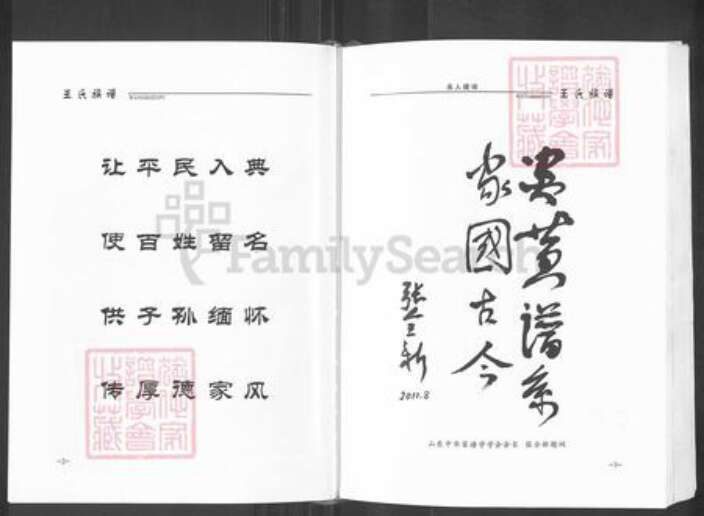 王氏族谱
让平民入典
使百姓留名
供子孙缅怀
传厚德家风
名人题词
王氏族谱
炎黄譜系
家國古今
张全新
2011.8
山东中华家谱学学会会长 张全新题词
FamilySearch